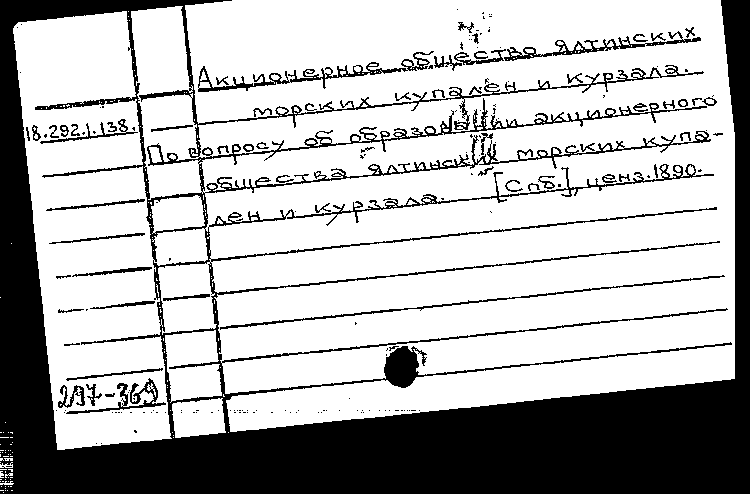 Акционерное общество Ялтинских
морских купален и курзала.
18.292.1.138.
По вопросу об образовании акционерного
общества Ялтинских морских купа-
лен и курзала. [Спб.], ценз. 1890.
297-369